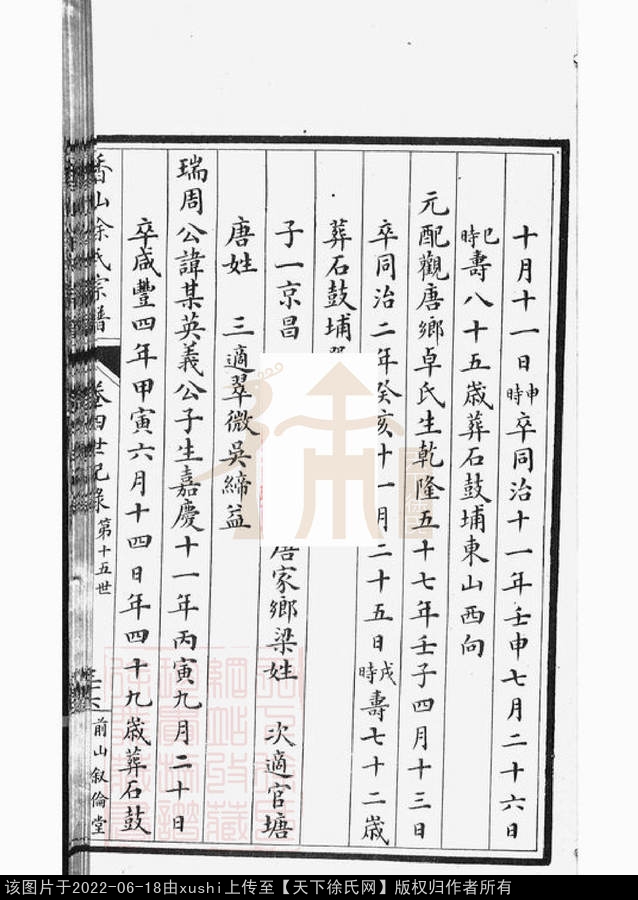 十月十一日申時卒同治十一年壬申七月二十六日
巳時壽八十五歲葬石鼓埔東山西向
元配觀唐鄉卓氏生乾隆五十七年壬子四月十三日
卒同治二年癸亥十一月二十五日戌時壽七十二歲
葬石鼓埔
子一京昌 唐家鄉梁姓 次適官塘
唐姓 三適翠微吳締益
瑞周公諱某英義公子生嘉慶十一年丙寅九月二十日
卒咸豐四年甲寅六月十四日年四十九歲葬石鼓
香山徐氏宗譜 卷四世紀錄 第十五世 前山叙倫堂
该图片于2022-06-18由xushi上传至【天下徐氏网】版权归作者所有